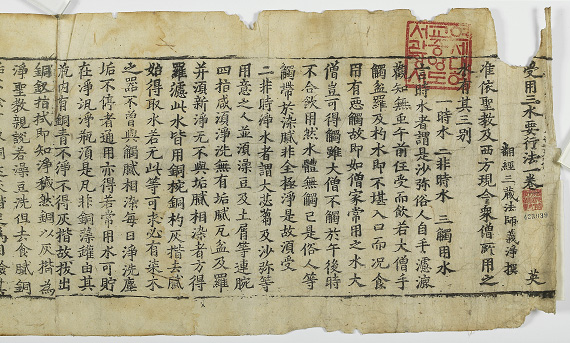 受用三水要行法 卷 英
翻經三藏法師義淨撰
准依聖教及西方現今衆僧所用之
水有其三別
一時水 二非時水 三觸用水
言時水者謂是沙弥俗人自手濾漉
觀知無虫午前任受而飲若大僧手
觸盆羅及杓水即不堪入口而況食
用有惡觸故即如僧家常用之水大
僧豈可得觸雖大僧不觸於午後時
不合飲用然水體無觸已是俗人等
觸帶於染膩非全極淨是故須受
二非時淨水者謂大苾蒭及沙弥等
用意之人並須澡豆及土屑等連腕
四指咸須淨洗無有垢膩瓦盆及羅
并須新淨元不與垢膩相染者方得
羅濾此水皆用銅椀銅杓灰揩去膩
始得取水若无此等可求必有柒木
之器不曾與觸膩相染每日淨洗塵
垢不停者通用亦得若常用水可貯
在淨瓨淨瓶須是瓦非銅澡鑵由其
瓶内有銅青不淨不得灰揩故拔出
銅釵揩拭即知淨穢然銅以灰揩爲
淨聖教親說若澡豆洗但去食膩銅